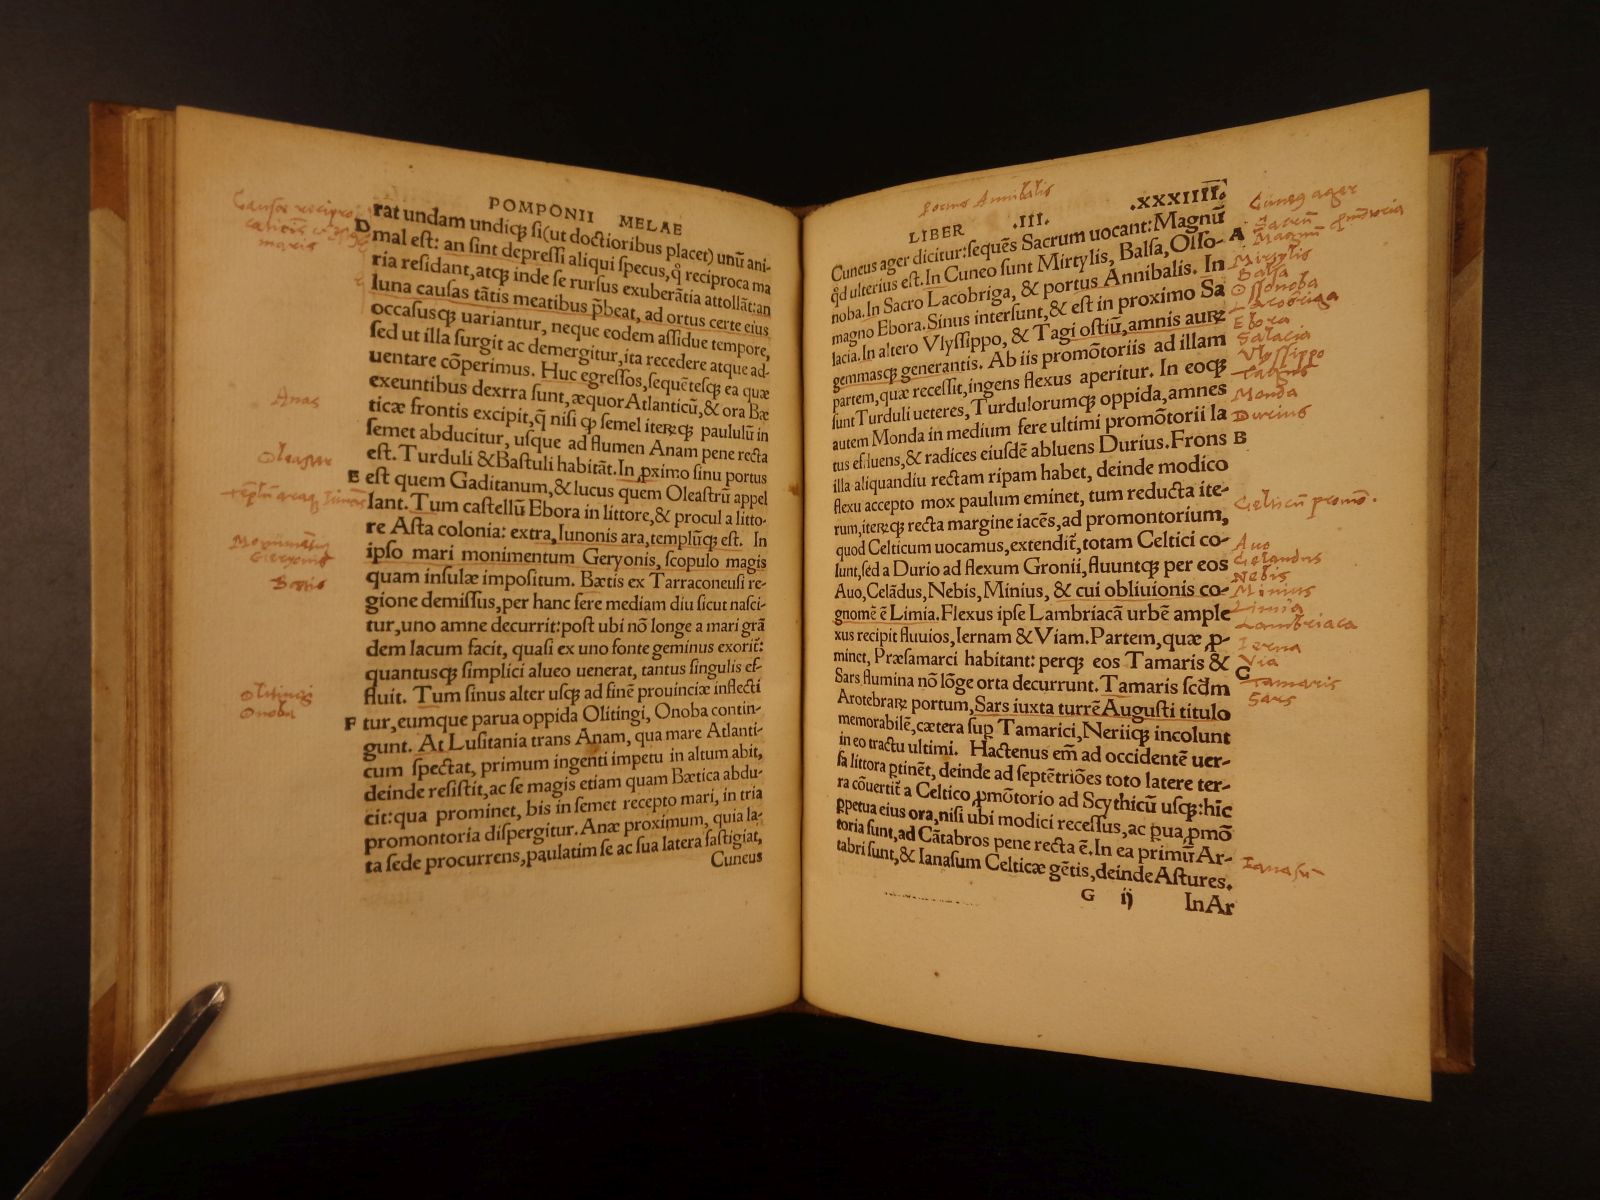 POMPONII MELAE
rat undam undiqꝫ si(ut doctioribus placet) unū ani-
mal est: an sint depressi aliqui specus, reciproca ma
ria residant, atqꝫ inde se rursus exuberātia attollāt: an
luna causas tātis meatibus p̄beat, ad ortus certe eius
occasusqꝫ uariantur, neque eodem assidue tempore,
sed ut illa surgit ac demergitur, ita recedere atque ad-
uentare cōperimus. Huc egressos, sequētesqꝫ ea quæ
exeuntibus dexrra sunt, æquor Atlanticū, & ora Bæ
ticæ frontis excipit, q̄ nisi ꝙ semel iterꝝqꝫ paululū in
semet abducitur, usque ad flumen Anam pene recta
est. Turduli & Bastuli habitāt. In ꝓximo sinu portus
est quem Gaditanum, & lucus quem Oleastrū appel
lant. Tum castellū Ebora in littore, & procul a litto-
re Asta colonia: extra, Iunonis ara, templūqꝫ est. In
ipso mari monimentum Geryonis, scopulo magis
quam insulæ impositum. Bætis ex Tarraconeusi re-
gione demissus, per hanc fere mediam diu sicut nasci-
tur, uno amne decurrit: post ubi nō longe a mari grā
dem lacum facit, quasi ex uno fonte geminus exorit̄:
quantusqꝫ simplici alueo uenerat, tantus singulis ef-
fluit. Tum sinus alter usqꝫ ad finē prouinciæ inflecti
tur, eumque parua oppida Olitingi, Onoba contin-
gunt. At Lusitania trans Anam, qua mare Atlanti-
cum spectat, primum ingenti impetu in altum abit,
deinde resistit, ac se magis etiam quam Bætica abdu-
cit: qua prominet, bis in semet recepto mari, in tria
promontoria dispergitur. Anæ proximum, quia la-
ta sede procurrens, paulatim se ac sua latera fastigiat,
Cuneus
D
E
F
Anas
Oleastrū
Bætis
Olitingi
Onoba
Portus Annibalis
LIBER .III. .XXXIIII.
Cuneus ager dicitur: sequēs Sacrum uocant: Magnū
qd ulterius est. In Cuneo sunt Mirtylis, Balsa, Osso-
noba. In Sacro Lacobriga, & portus Annibalis. In
magno Ebora. Sinus intersunt, & est in proximo Sa
lacia. In altero Vlyssippo, & Tagi ostiū, amnis aurꝝ
gemmasqꝫ generantis. Ab iis promōtoriis ad illam
partem, quæ recessit, ingens flexus aperitur. In eoqꝫ
sunt Turduli ueteres, Turdulorumqꝫ oppida, amnes
autem Monda in medium fere ultimi promōtorii la
tus effluens, & radices eiusdē abluens Durius. Frons
illa aliquandiu rectam ripam habet, deinde modico
flexu accepto mox paulum eminet, tum reducta ite-
rum, iterꝝqꝫ recta margine iacēs, ad promontorium,
quod Celticum uocamus, extendit̄, totam Celtici co-
lunt, sed a Durio ad flexum Gronii, fluuntqꝫ per eos
Auo, Celādus, Nebis, Minius, & cui obliuionis co-
gnomē ē Limia. Flexus ipse Lambriacā urbē ample
xus recipit fluuios, Iernam & Viam. Partem, quæ ꝓ-
minet, Præsamarci habitant: perqꝫ eos Tamaris &
Sars flumina nō lōge orta decurrunt. Tamaris scd̄m
Arotebrarꝝ portum, Sars iuxta turrē Augusti titulo
memorabilē, cætera sup Tamarici, Neriiqꝫ incolunt
in eo tractu ultimi. Hactenus em̄ ad occidentē uer-
sa littora ꝑtinēt, deinde ad septētriōes toto latere ter-
ra cōuertit̄ a Celtico ꝓmōtorio ad Scythicū usqꝫ: hīc
ꝑpetua eius ora, nisi ubi modici recessus, ac ꝑua ꝓmō
toria sunt, ad Cātabros pene recta ē. In ea primū Ar-
tabri sunt, & Ianasum Celticæ gētis, deinde Astures.
G ij InAr
A
B
G
Cuneus ager
Mirtylis
Balsa
Ossonoba
Lacobriga
Ebora
Salacia
Vlyssippo
Tagus
Monda
Durius
Celticū promō.
Auo
Celandus
Nebis
Minius
Limia
Lambriaca
Ierna
Via
Tamaris
Sars
Ianasū